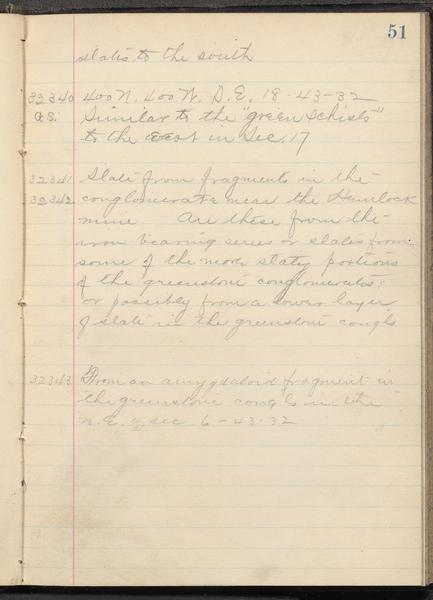 51
slates to the south
32340 400 N. 400 W. S.E. 18-43-32
G.S. Similar to the "green schists"
to the east in Sec. 17
32341 Slate from fragments in the
32342 conglomerate near the Hemlock
mine Are these from the
iron bearing series or slates from
some of the more slaty portions
of the greenstone conglomerates;
or possibly from a lower layer
of slate in the greenstone congls
32343 From an amygdaloid fragment in
the greenstone congls in the
N.E. sec 6-43-32